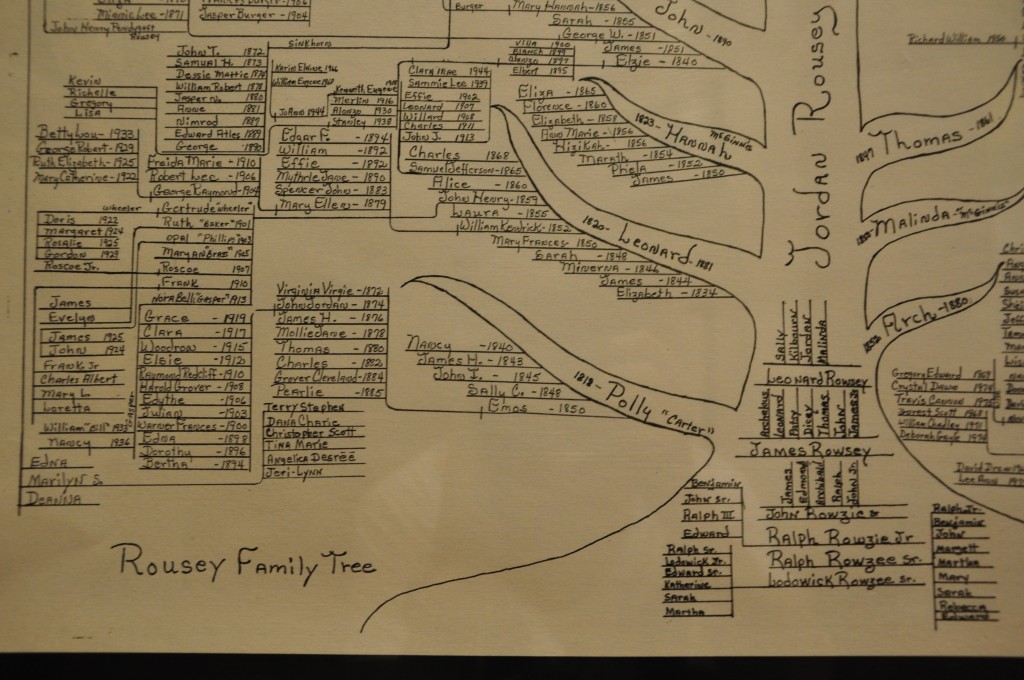 Minnie Lee-1871
Jasper Burger-1904
John Henry
Rousey
Burger
Mary Hannah-1856
Sarah - 1855
George W.-1851
James -1851
Elzie - 1840
John - 1890
Jordan Rousey
Richard William
Sinkhorn
John T. 1872
Samuel H. 1873
Dessie Mattie
William Robert 1878
Jasper N. 1880
Anne 1881
Nimrod 1887
Edward Atles 1889
George
Kevin
Richelle
Gregory
Lisa
JoAnn 1944
Kenneth Eugene
Merlin 1916
Alonzo 1930
Stanley 1938
Clara Mae 1944
Sammie Lee 1939
Effie 1902
Leonard 1907
Willard 1908
Charles 1911
John J. 1913
Elbert 1895
Eliza - 1865
Florence - 1860
Elizabeth - 1858
Ann Marie - 1856
Hizikah - 1856
Marath - 1854
Phela - 1852
James - 1850
1823- Hannah McGinnis
Thomas - 1861
Malinda-"McGinnis"
Arch-1880
Betty Lou - 1933
George Robert - 1929
Ruth Elizabeth - 1925
Mary Catherine - 1922
Freida Marie - 1910
Robert Lee - 1906
George Raymond - 1904
Edgar F. - 1894
William - 1892
Effie - 1892
Muthrie Jane - 1890
Spencer John - 1883
Mary Ellen - 1879
Charles 1868
Samuel Jefferson-1865
Alice - 1860
John Henry-1859
Laura - 1855
William Kendrick - 1852
Mary Frances - 1850
Sarah - 1848
Minerna - 1846
James - 1844
Elizabeth - 1834
1820- Leonard 1881
Wheeler
Gertrude "Wheeler"
Ruth "Baker" 1901
Opal "Phillip"
Mary Ann
Roscoe 1907
Frank 1910
Nora Bell "Gasper" 1913
Doris 1922
Margaret 1924
Rosalie 1925
Gordon 1929
Roscoe Jr.
James
Evelyn
James 1925
John 1924
Frank Jr
Charles Albert
Mary L.
Loretta
William "Bill"
Nancy 1936
Edna
Marilyn S.
Deanna
Grace - 1919
Clara - 1917
Woodrow - 1915
Elsie - 1912
Raymond Radcliff-1910
Harold Grover - 1908
Edythe - 1906
Julian - 1903
Warner Frances - 1900
Edna - 1898
Dorothy - 1896
Bertha - 1894
Virginia Virgie - 1872
John Jordan - 1874
James H. - 1876
Mollie Jane - 1878
Thomas - 1880
Charles - 1882
Grover Cleveland - 1884
Pearlie - 1885
Terry Stephen
Dana Charie
Christopher Scott
Tina Marie
Angelica Desreé
Jeri-Lynn
Nancy - 1840
James H. - 1843
John I. - 1845
Sally C. - 1848
Emos - 1850
1818- Polly "Carter"
Sally
Kilbourn
Jordan
Malinda
Leonard Rowsey
Archelous
Leonard
Patsy
Dicey
Thomas
John
James Jr
James Rowsey
James
Edmond
Archibald
Ralph
John Jr.
John Rowzie Sr
Ralph Rowzie Jr
Ralph Rowzee Sr.
Lodowick Rowzee Sr.
Benjamin
John Sr.
Ralph III
Edward
Ralph Sr.
Lodowick Jr.
Edward Sr.
Katherine
Sarah
Martha
Ralph Jr.
Benjamin
John
Margett
Martha
Mary
Sarah
Rebecca
Edward
Gregory Edward
Crystal Dawn
Travis Cannon
Forrest Scott
Deborah Gayle
David Drew
Lee Ann
Rousey Family Tree